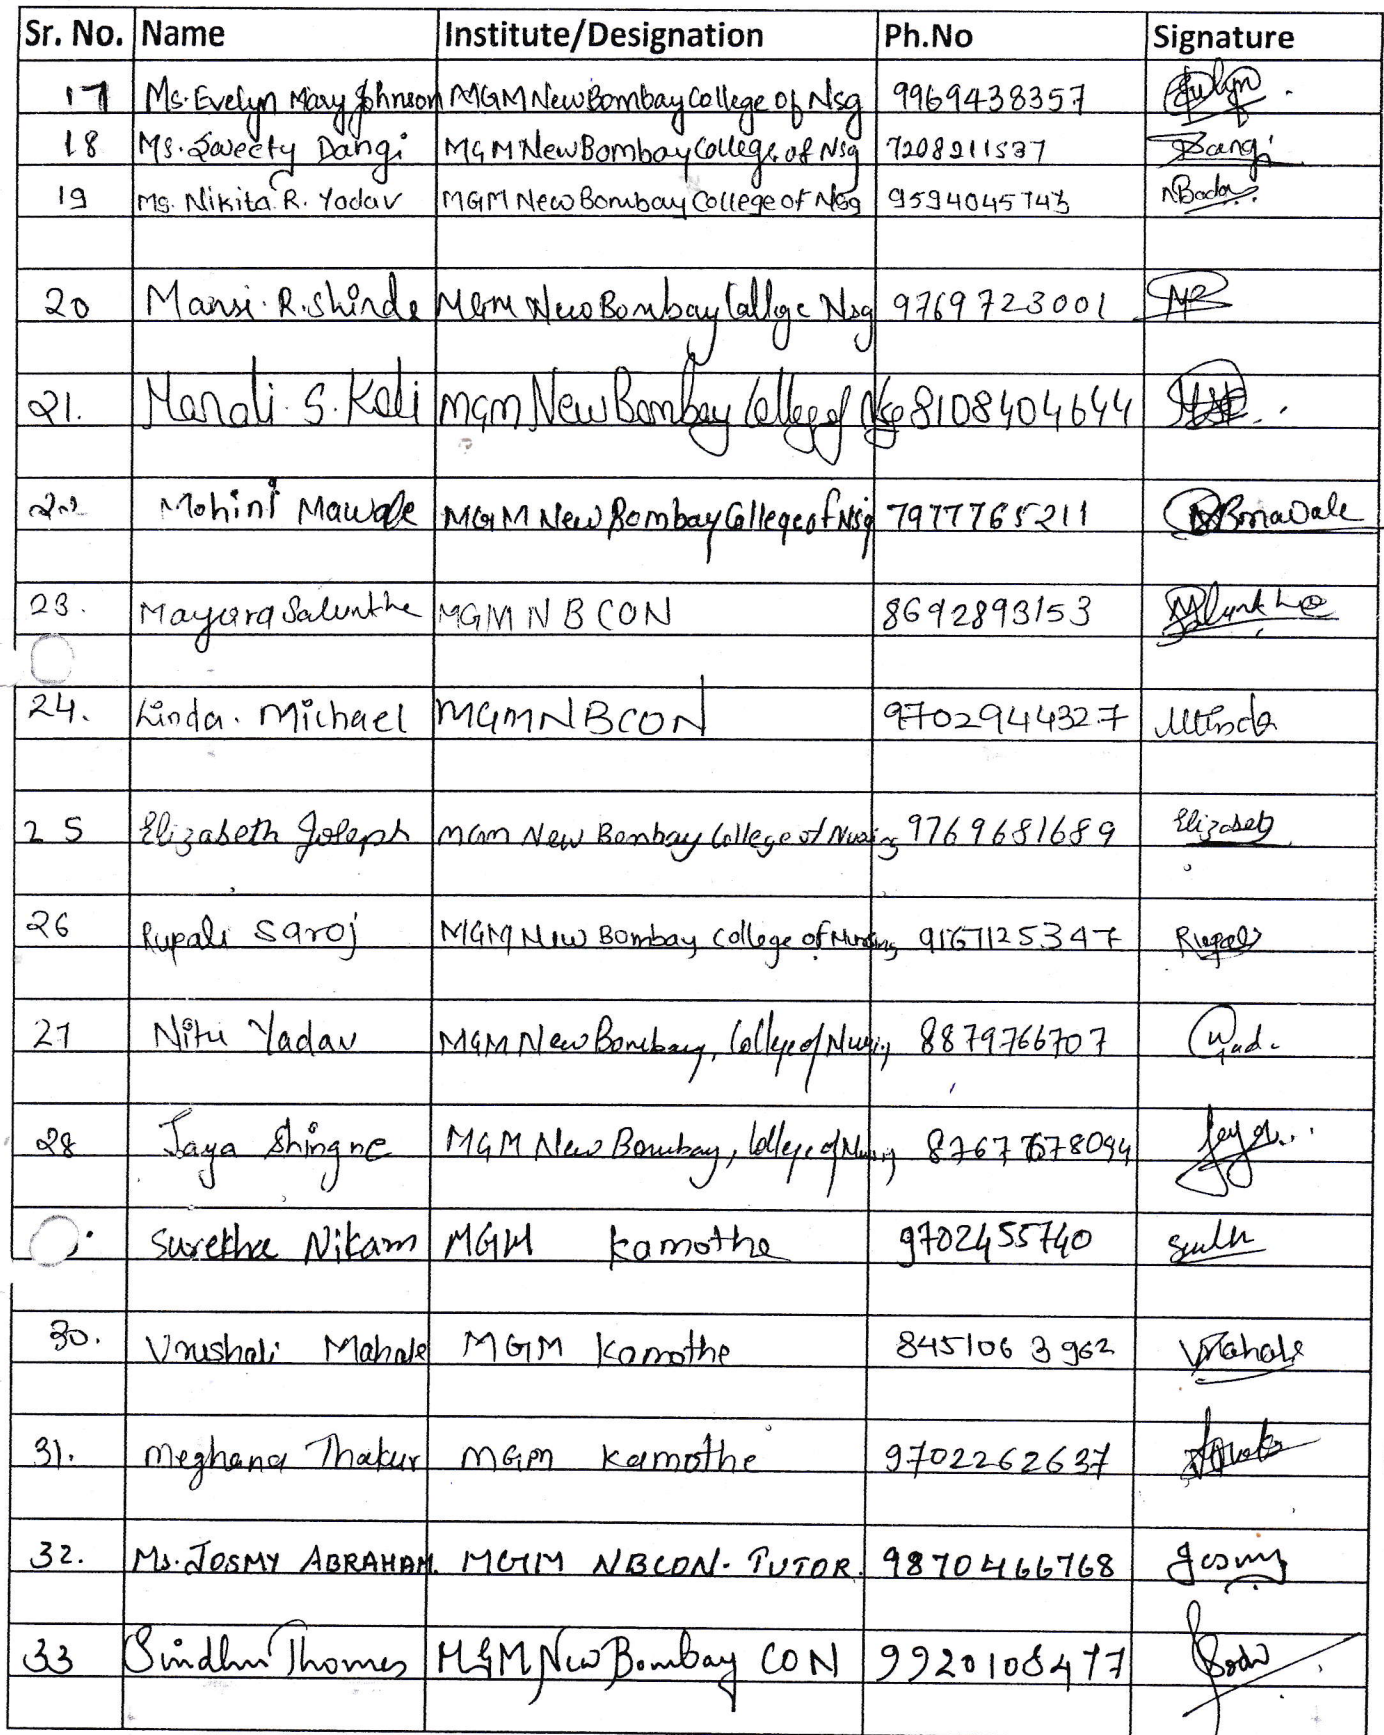 Sr. No. Name Institute/Designation Ph.No Signature
17 Ms. Evelyn Mary Johnson MGM New Bombay College of Nsg 9969438357
18 Ms. Sweety Dangi MGM New Bombay College of Nsg 7208211537 Dangi
19 Ms. Nikita R. Yadav MGM New Bombay College of Nsg 9594045743
20 Mansi. R. Shinde MGM New Bombay College Nsg 9769723001
21. Manali. S. Koli MGM New Bombay College of Nsg 8108404644
22 Mohini Mawale MGM New Bombay College of Nsg 7977765211
23. Mayura Salunkhe MGM N B CON 8692893153
24. Linda. Michael MGMNBCON 9702944327
25 Elizabeth Joseph MGM New Bombay College of Nursing 9769681689 Elizabeth
26 Rupali Saroj MGM New Bombay College of Nursing 9167125347 Rupali
27 Nitu Yadav MGM New Bombay, College of Nursing 8879766707
28 Jaya Shingne MGM New Bombay, College of Nursing Jaya
Surekha Nikam MGM Kamothe 9702455740
30. Vrushali Mahale MGM Kamothe 8451063962 VMahale
31. Meghana Thakur MGM Kamothe 9702262637
32. Ms. JOSMY ABRAHAM. MGM NBCON- TUTOR. 9870466768 Josmy
33 Sindhu Thomas MGM New Bombay CON 9920108477